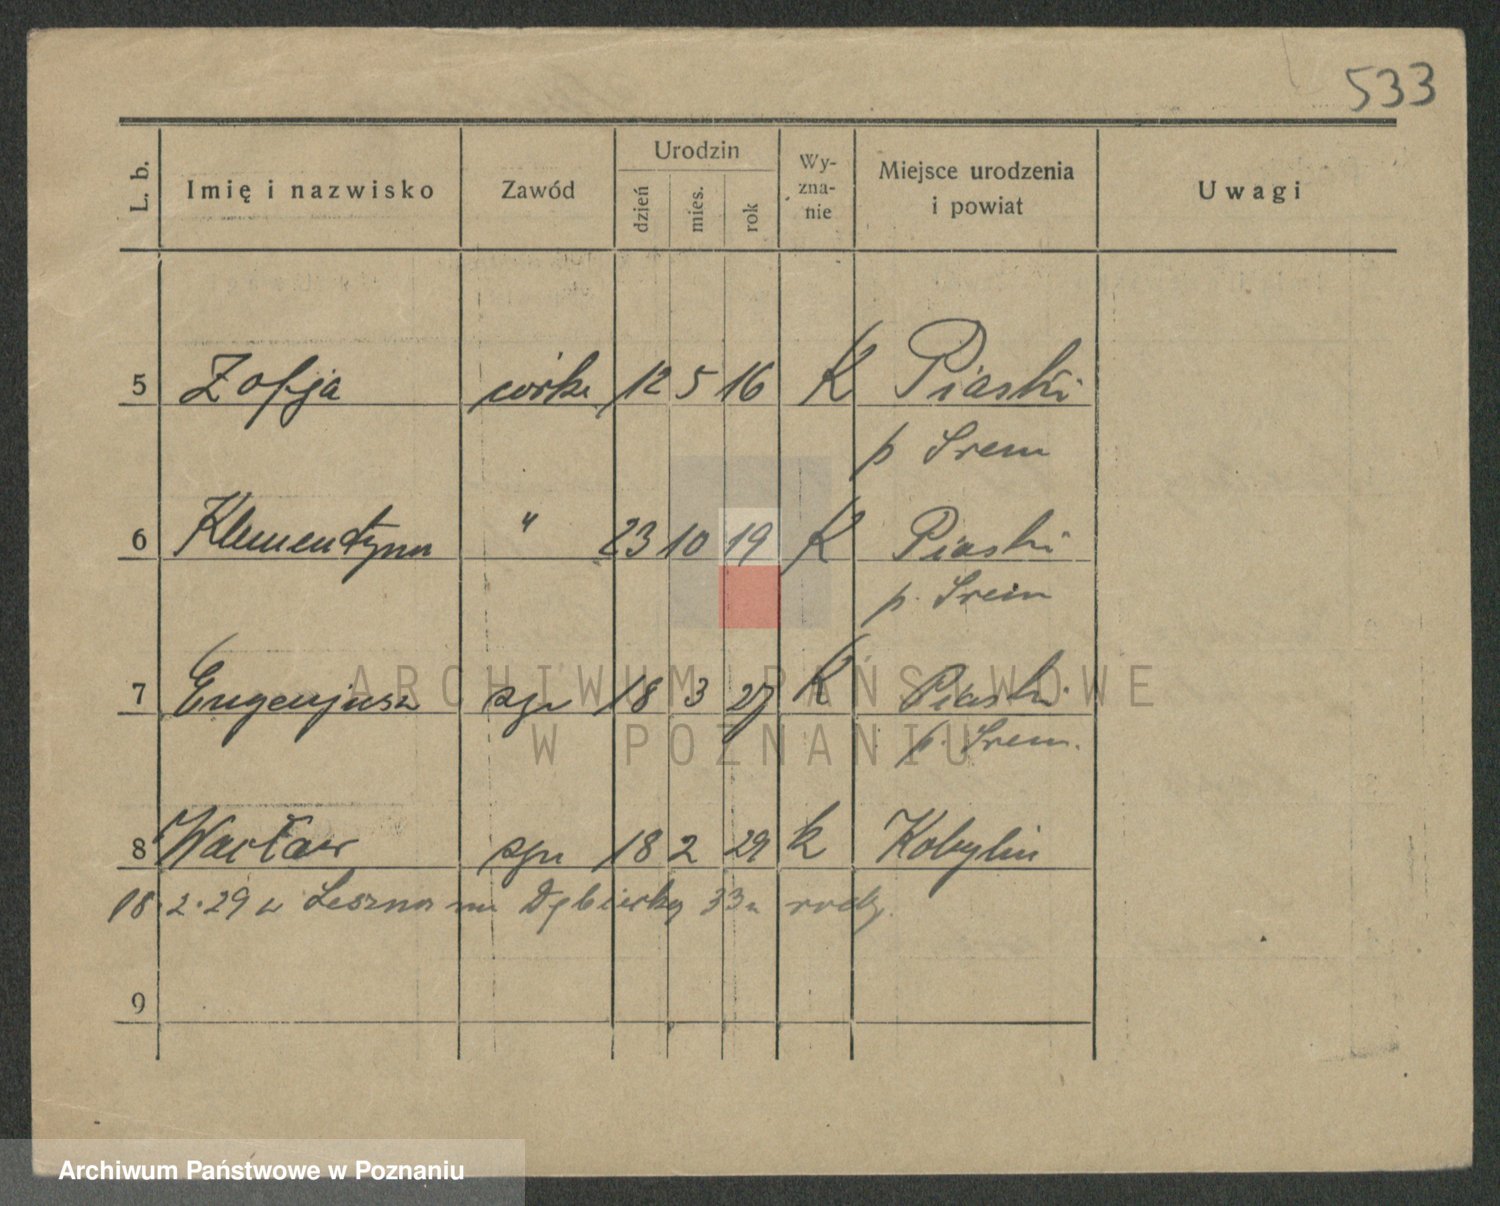 533
L. b. Imię i nazwisko Zawód Urodzin dzień mies. rok Wy-zna-nie Miejsce urodzenia i powiat Uwagi
5 Zofja córka 12 5 16 K Piaski
p Śrem
6 Klementyna " 23 10 19 K Piaski
p. Śrem
7 Eugenjusz syn 18 3 27 K Piaski
p. Śrem.
8 Wacław syn 18 2 29 k Kobylin
18.2.29 z Leszna 33
9
ARCHIWUM PAŃSTWOWE
W POZNANIU
Archiwum Państwowe w Poznaniu